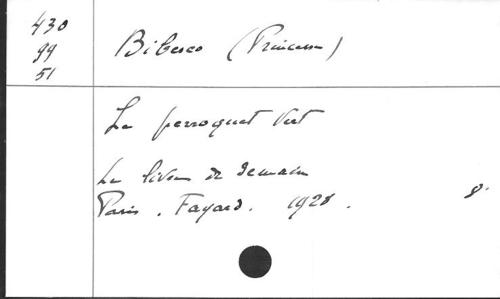 430
99
51
Bibesco (Princesse)
Le perroquet Vert
Le livre de demain
Paris. Fayard. 1928. 8°